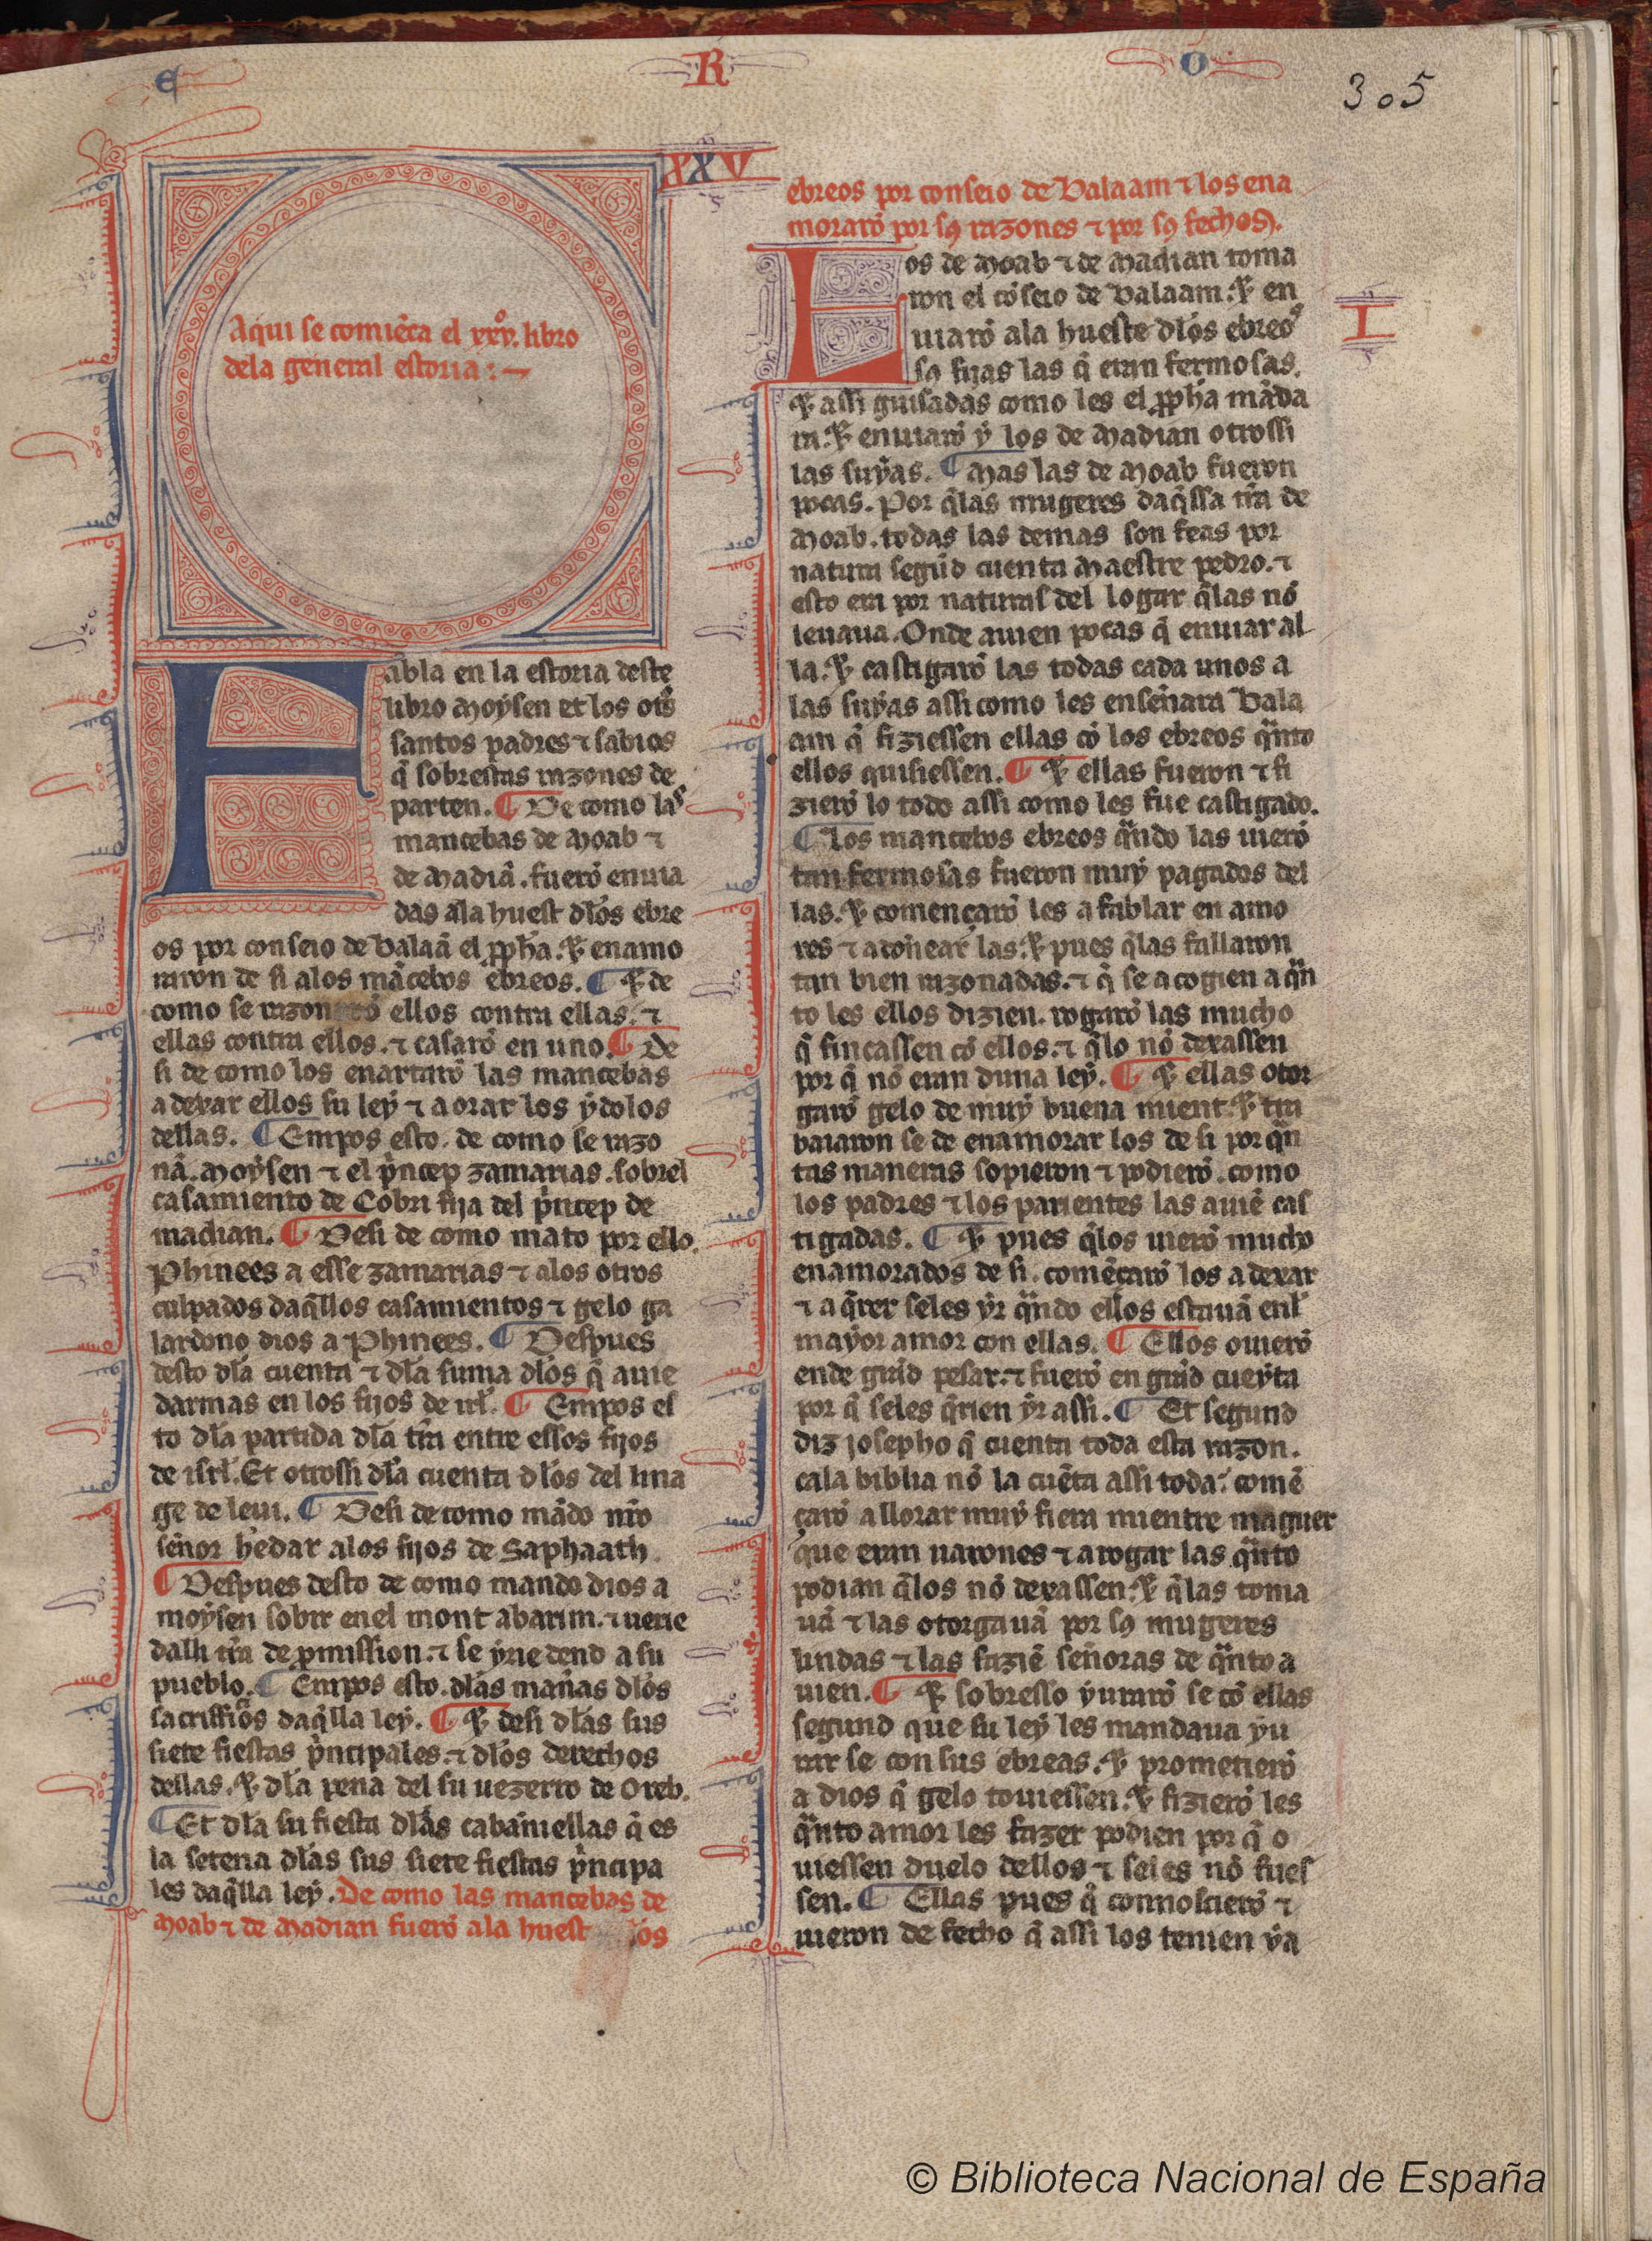 E R O
305
XXV
Aqui se comiēça el xxvº. libro
dela general estoria : ~
Fabla en la estoria deste
libro Moysen et los otrˢ
santos padres ⁊ sabios
q̄ sobrestas razones de
parten. ¶ De como las
mancebas de Moab ⁊
de Madiā. fuerō enuia
das ala huest dlōs ebre
os por conseio de balaā el ꝓpha. ⁊ enamo
raron de si alos mācebos ebreos. ¶ ⁊ de
como se razonarō ellos contra ellas. ⁊
ellas contra ellos. ⁊ casarō en uno. ¶ De
si de como los enartarō las mancebas
a dexar ellos su ley ⁊ a orar los ydolos
dellas. ¶ Empos esto. de como se razo
nā. Moysen ⁊ el p̄ncep zamarias. sobrel
casamiento de Cobri fija del p̄ncep de
madian. ¶ Desi de como mato por ello.
Phinees a esse zamarias ⁊ alos otros
culpados daq̄llos casamientos ⁊ gelo ga
lardono dios a Phinees. ¶ Despues
desto dl̄a cuenta ⁊ dl̄a suma dlōs q̄ auie
darmas en los fijos de irl̄. ¶ Empos es
to dl̄a partida dl̄a tr̄ra entre essos fijos
de isrl̄. Et otrossi dl̄a cuenta dlōs del lina
ge de leui. ¶ Desi de como mādo nr̄o
señor hedar alos fijos de Saphaath
¶ Despues desto de como mando dios a
moysen sobir enel mont abarim. ⁊ uerie
dalli tr̄ra de ꝓmission. ⁊ se yrie dend a su
pueblo. ¶ Empos esto. dlās mañas dlōs
sacriffiōs daq̄lla ley. ¶ ⁊ desi dlās sus
siete fiestas p̄ncipales. ⁊ dlōs derechos
dellas. ⁊ dl̄a pena del su uezerro de Oreb.
¶ Et dl̄a su fiesta dlās cabañiellas q̄ es
la setena dlās sus siete fiestas p̄ncipa
les daq̄lla ley. De como las mancebas de
Moab ⁊ de Madian fuerō ala huest dlōs
ebreos por conseio de Balaam ⁊ los ena
morarō por sꝯ razones ⁊ por sꝯ fechos.
I
Los de Moab ⁊ de Madian toma
ron el cōseio de balaam. ⁊ en
uiarō ala hueste dlōs ebreoˢ
sꝯ fijas las q̄ eran fermosas.
⁊ assi guisadas como les el ꝓpha māda
ra. ⁊ enuiarō y los de Madian otrossi
las suyas. ¶ Mas las de Moab fueron
pocas. Por q̄ las mugeres daq̄ssa tr̄ra de
Moab. todas las demas son feas por
natura segūd cuenta Maestre pedro. ⁊
esto era por naturas del logar q̄ las nō
leuaua. Onde auien pocas q̄ enuiar al
la. ⁊ castigarō las todas cada unos a
las suyas assi como les enseñara Bala
am q̄ fiziessen ellas cō los ebreos qᵃnto
ellos quisiessen. ¶ ⁊ ellas fueron ⁊ fi
zierō lo todo assi como les fue castigado.
¶ Los mancebos ebreos qᵃndo las uierō
tan fermosas fueron muy pagados del
las. ⁊ començarō les a fablar en amo
res ⁊ a doñear las. ⁊ pues q̄ las fallaron
tan bien razonadas. ⁊ q̄ se acogien a qᵃn
to les ellos dizien. rogarō las mucho
q̄ fincassen cō ellos. ⁊ q̄ lo nō dexassen
por q̄ nō eran duna ley. ¶ ⁊ ellas otor
garō gelo de muy buena mient. ⁊ tra
baiaron se de enamorar los de si por qᵃn
tas maneras sopieron ⁊ podierō. como
los padres ⁊ los parientes las auiē cas
tigadas. ¶ ⁊ pues q̄ los uierō mucho
enamorados de si. comēçarō los a dexar
⁊ a q̄rer seles yr qᵃndo ellos estauā enl̄
mayor amor con ellas. ¶ Ellos ouierō
ende grād pesar. ⁊ fuerō en grād cueyta
por q̄ seles q̄rien yr assi. ¶ Et segund
diz Josepho q̄ cuenta toda esta razon.
cala biblia nō la cuēta assi toda: comē
çarō a llorar muy fiera mientre maguer
que eran uarones ⁊ a rogar las qᵃnto
podian q̄ los nō dexassen. ⁊ q̄ las toma
uā ⁊ las otorgauā por sꝯ mugeres
lindas ⁊ las faziē señoras de qᵃnto a
uien. ¶ ⁊ sobresso yurarō se cō ellas
segund que su ley les mandaua yu
rar se con sus ebreas. ⁊ prometierō
a dios q̄ gelo touiessen. ⁊ fizierō les
qᵃnto amor les fazer podien por q̄ o
uiessen duelo dellos ⁊ seles nō fues
sen. ¶ Ellas pues q̄ connoscierō ⁊
uieron de fecho q̄ assi los tenien ya
© Biblioteca Nacional de España